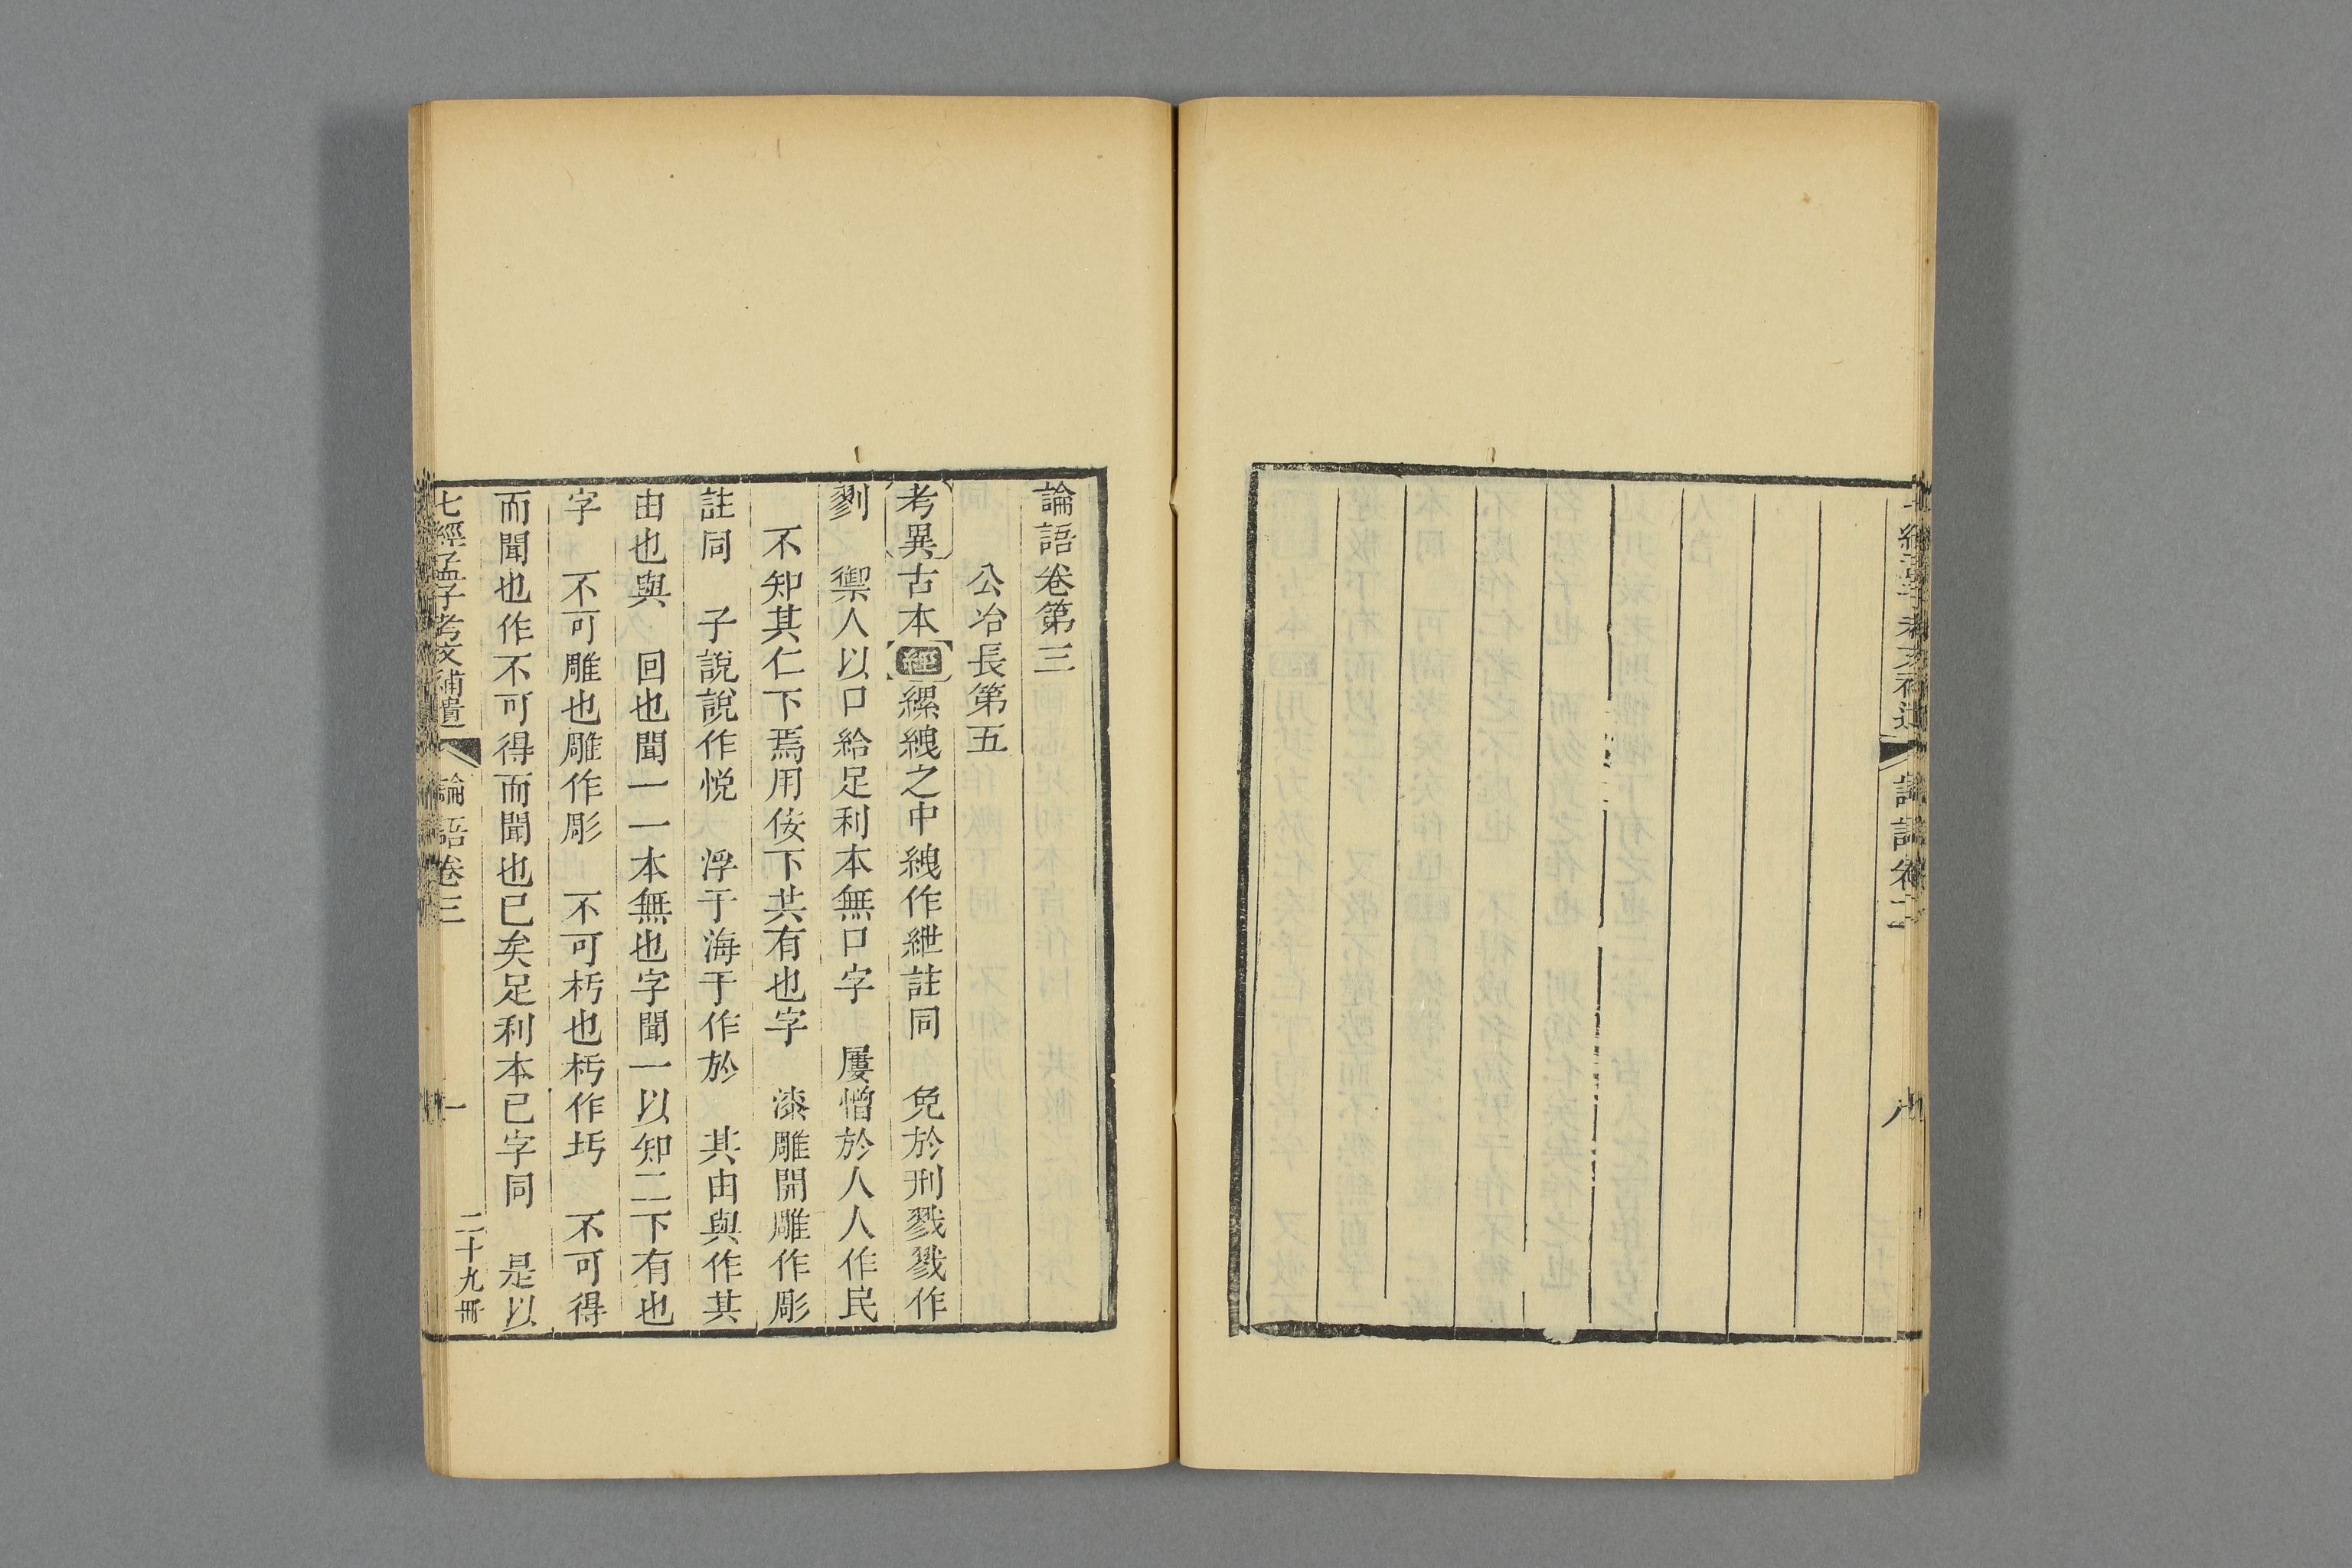 論語卷第三
公冶長第五
考異古本經縲絏之中絏作紲註同　免於刑戮戮作
剹　禦人以口給足利本無口字　屢憎於人人作民
不知其仁下焉用佞下共有也字　漆雕開雕作彫
註同　子說說作悅　浮于海于作於　其由與作其
由也與　回也聞一一本無也字聞一以知二下有也
字　不可雕也雕作彫　不可杇也杇作圬　不可得
而聞也作不可得而聞也已矣足利本已字同　是以
七經孟子考文補遺　論語卷三　一　二十九冊